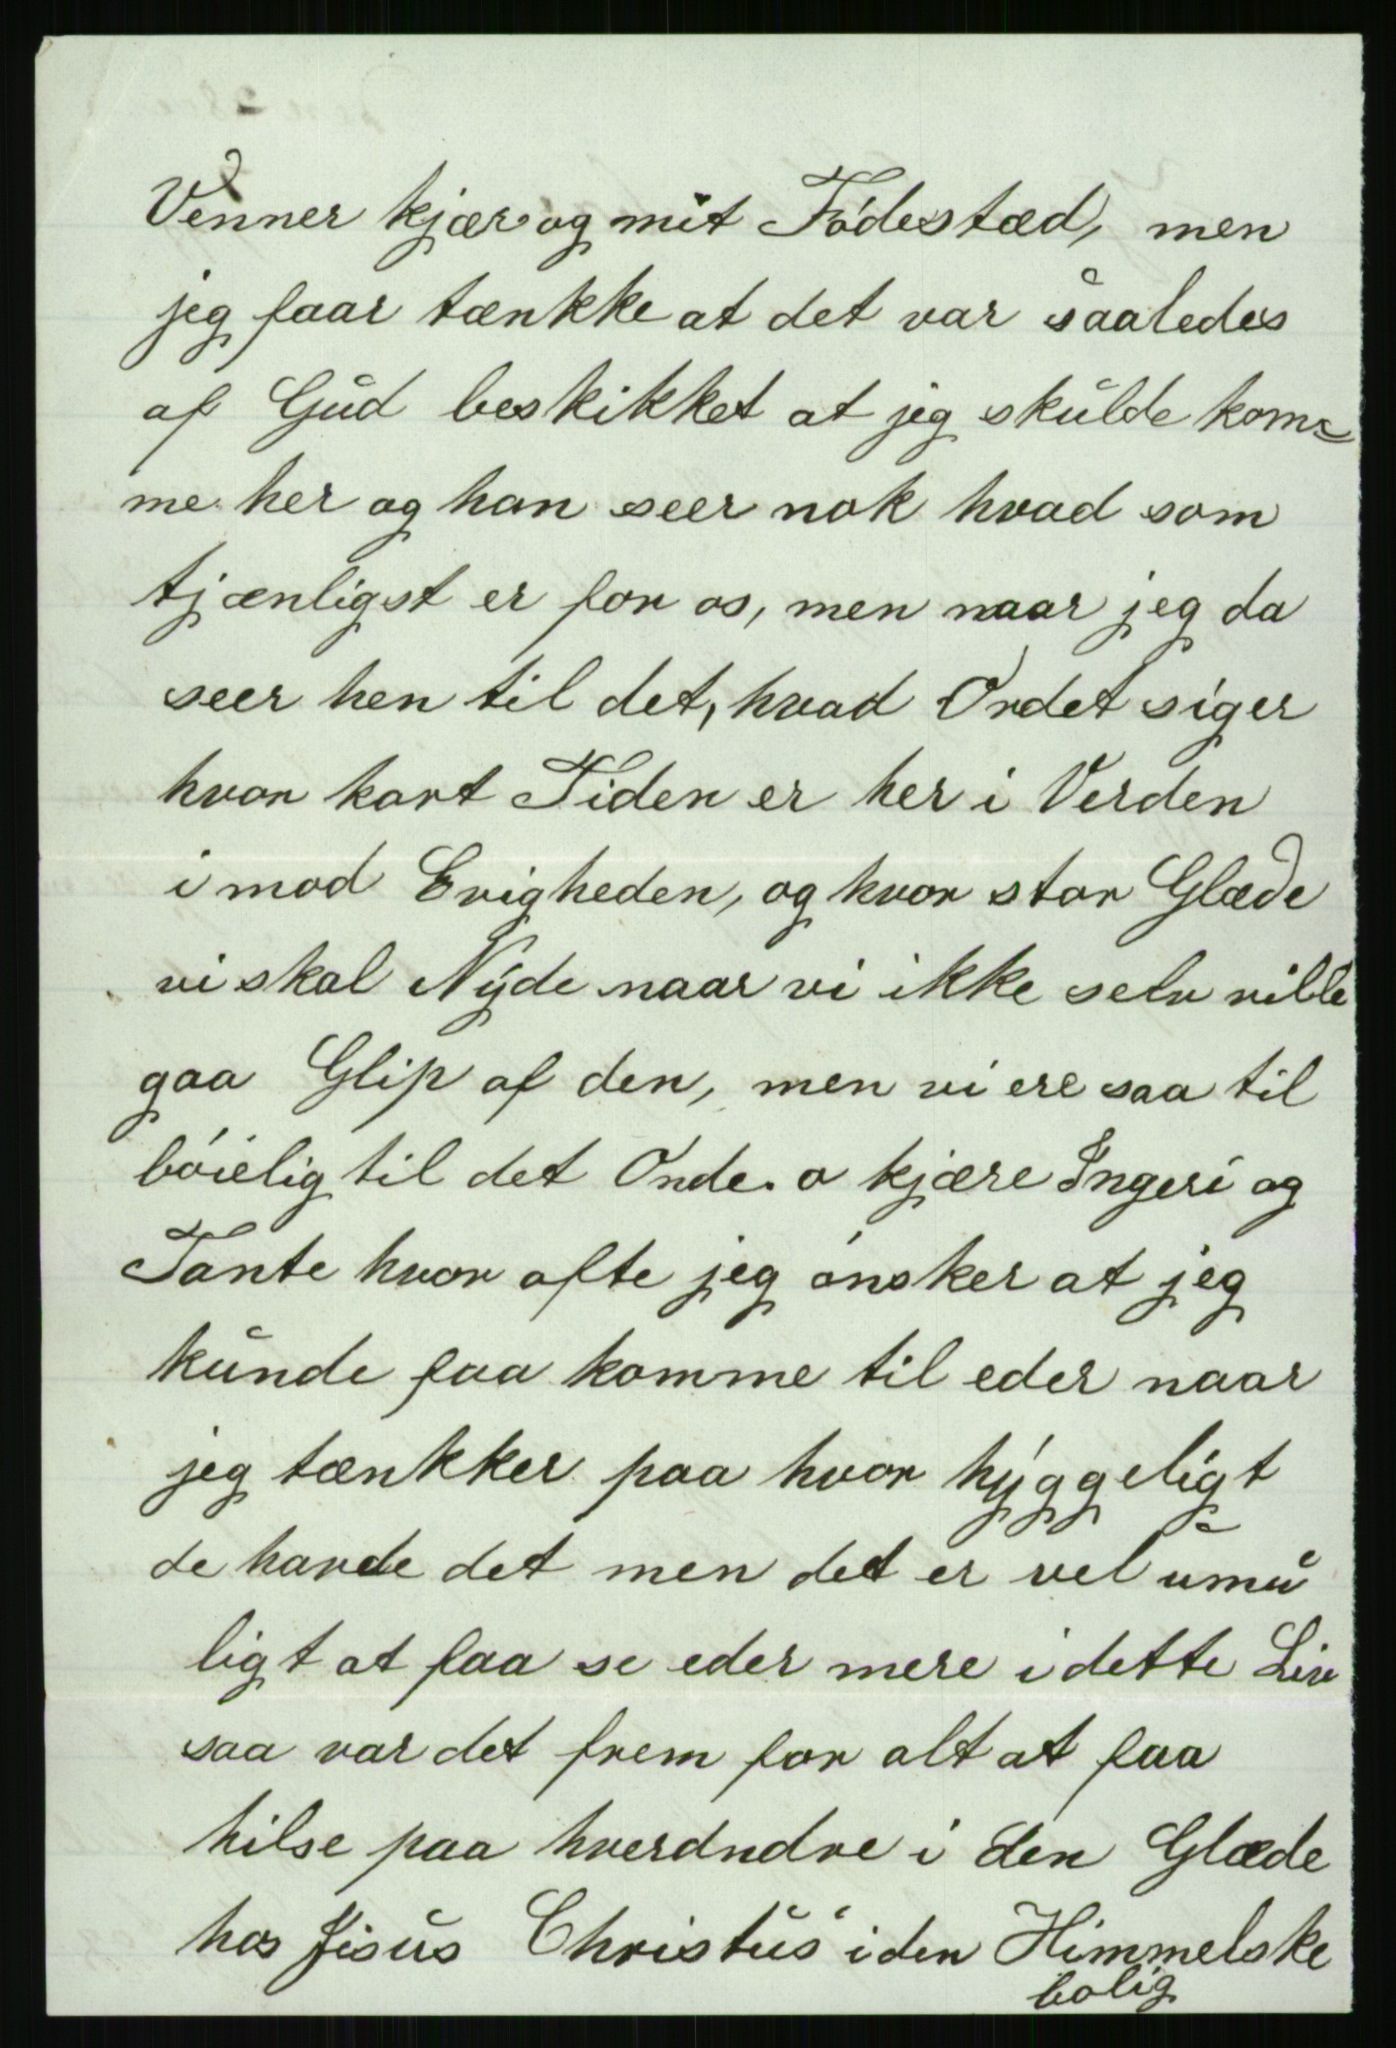 Venner kjær og mit Fódestæd, men
jeg faar tænkke at det var saaledes
af Gud beskikket at jeg skulde kom=
me her og han seer nok hvad som
tjænligst er for os, men naar jeg da
seer hen til det, hvad Ordet siger
hvor kort Tiden er her i Verden
i mod Evigheden, og hvor stor Glæde
vi skal Nÿde naar vi ikke selv ville
gaa Glip af den, men vi ere saa til
bóielig til det Onde. o kjære Ingeri og
Tante hvor ofte jeg ónsker at jeg
kunde faa komme til eder naar
jeg tænkker paa hvor hÿggeligt
de havde det men det er vel umu
ligt at faa se eder mere i dette Liv
saa var det frem for alt at faa
hilse paa hverdndre i den Glæde
hos Jisus Christus i den Himmelske
bolig